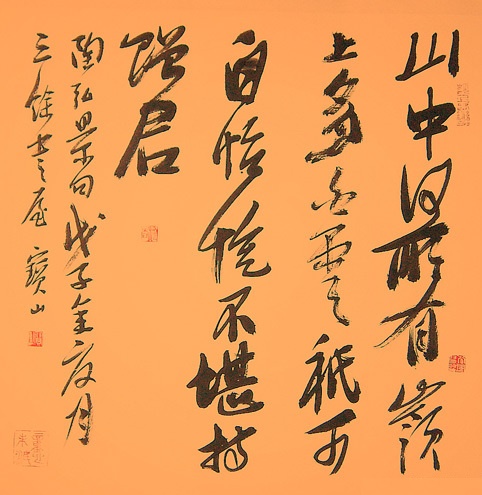 山中何所有嶺
上多白雲祇可
自怡悅不堪持
贈君
陶弘景句戊子月
三餘書屋寶山